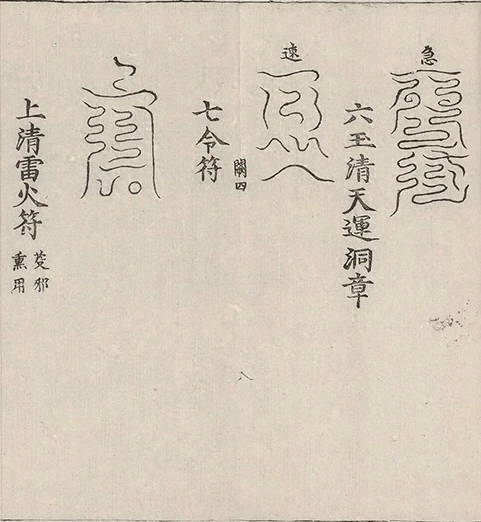 急
六玉清天運洞章
速
闕四
七令符
上清雷火符
芰邪
熏用